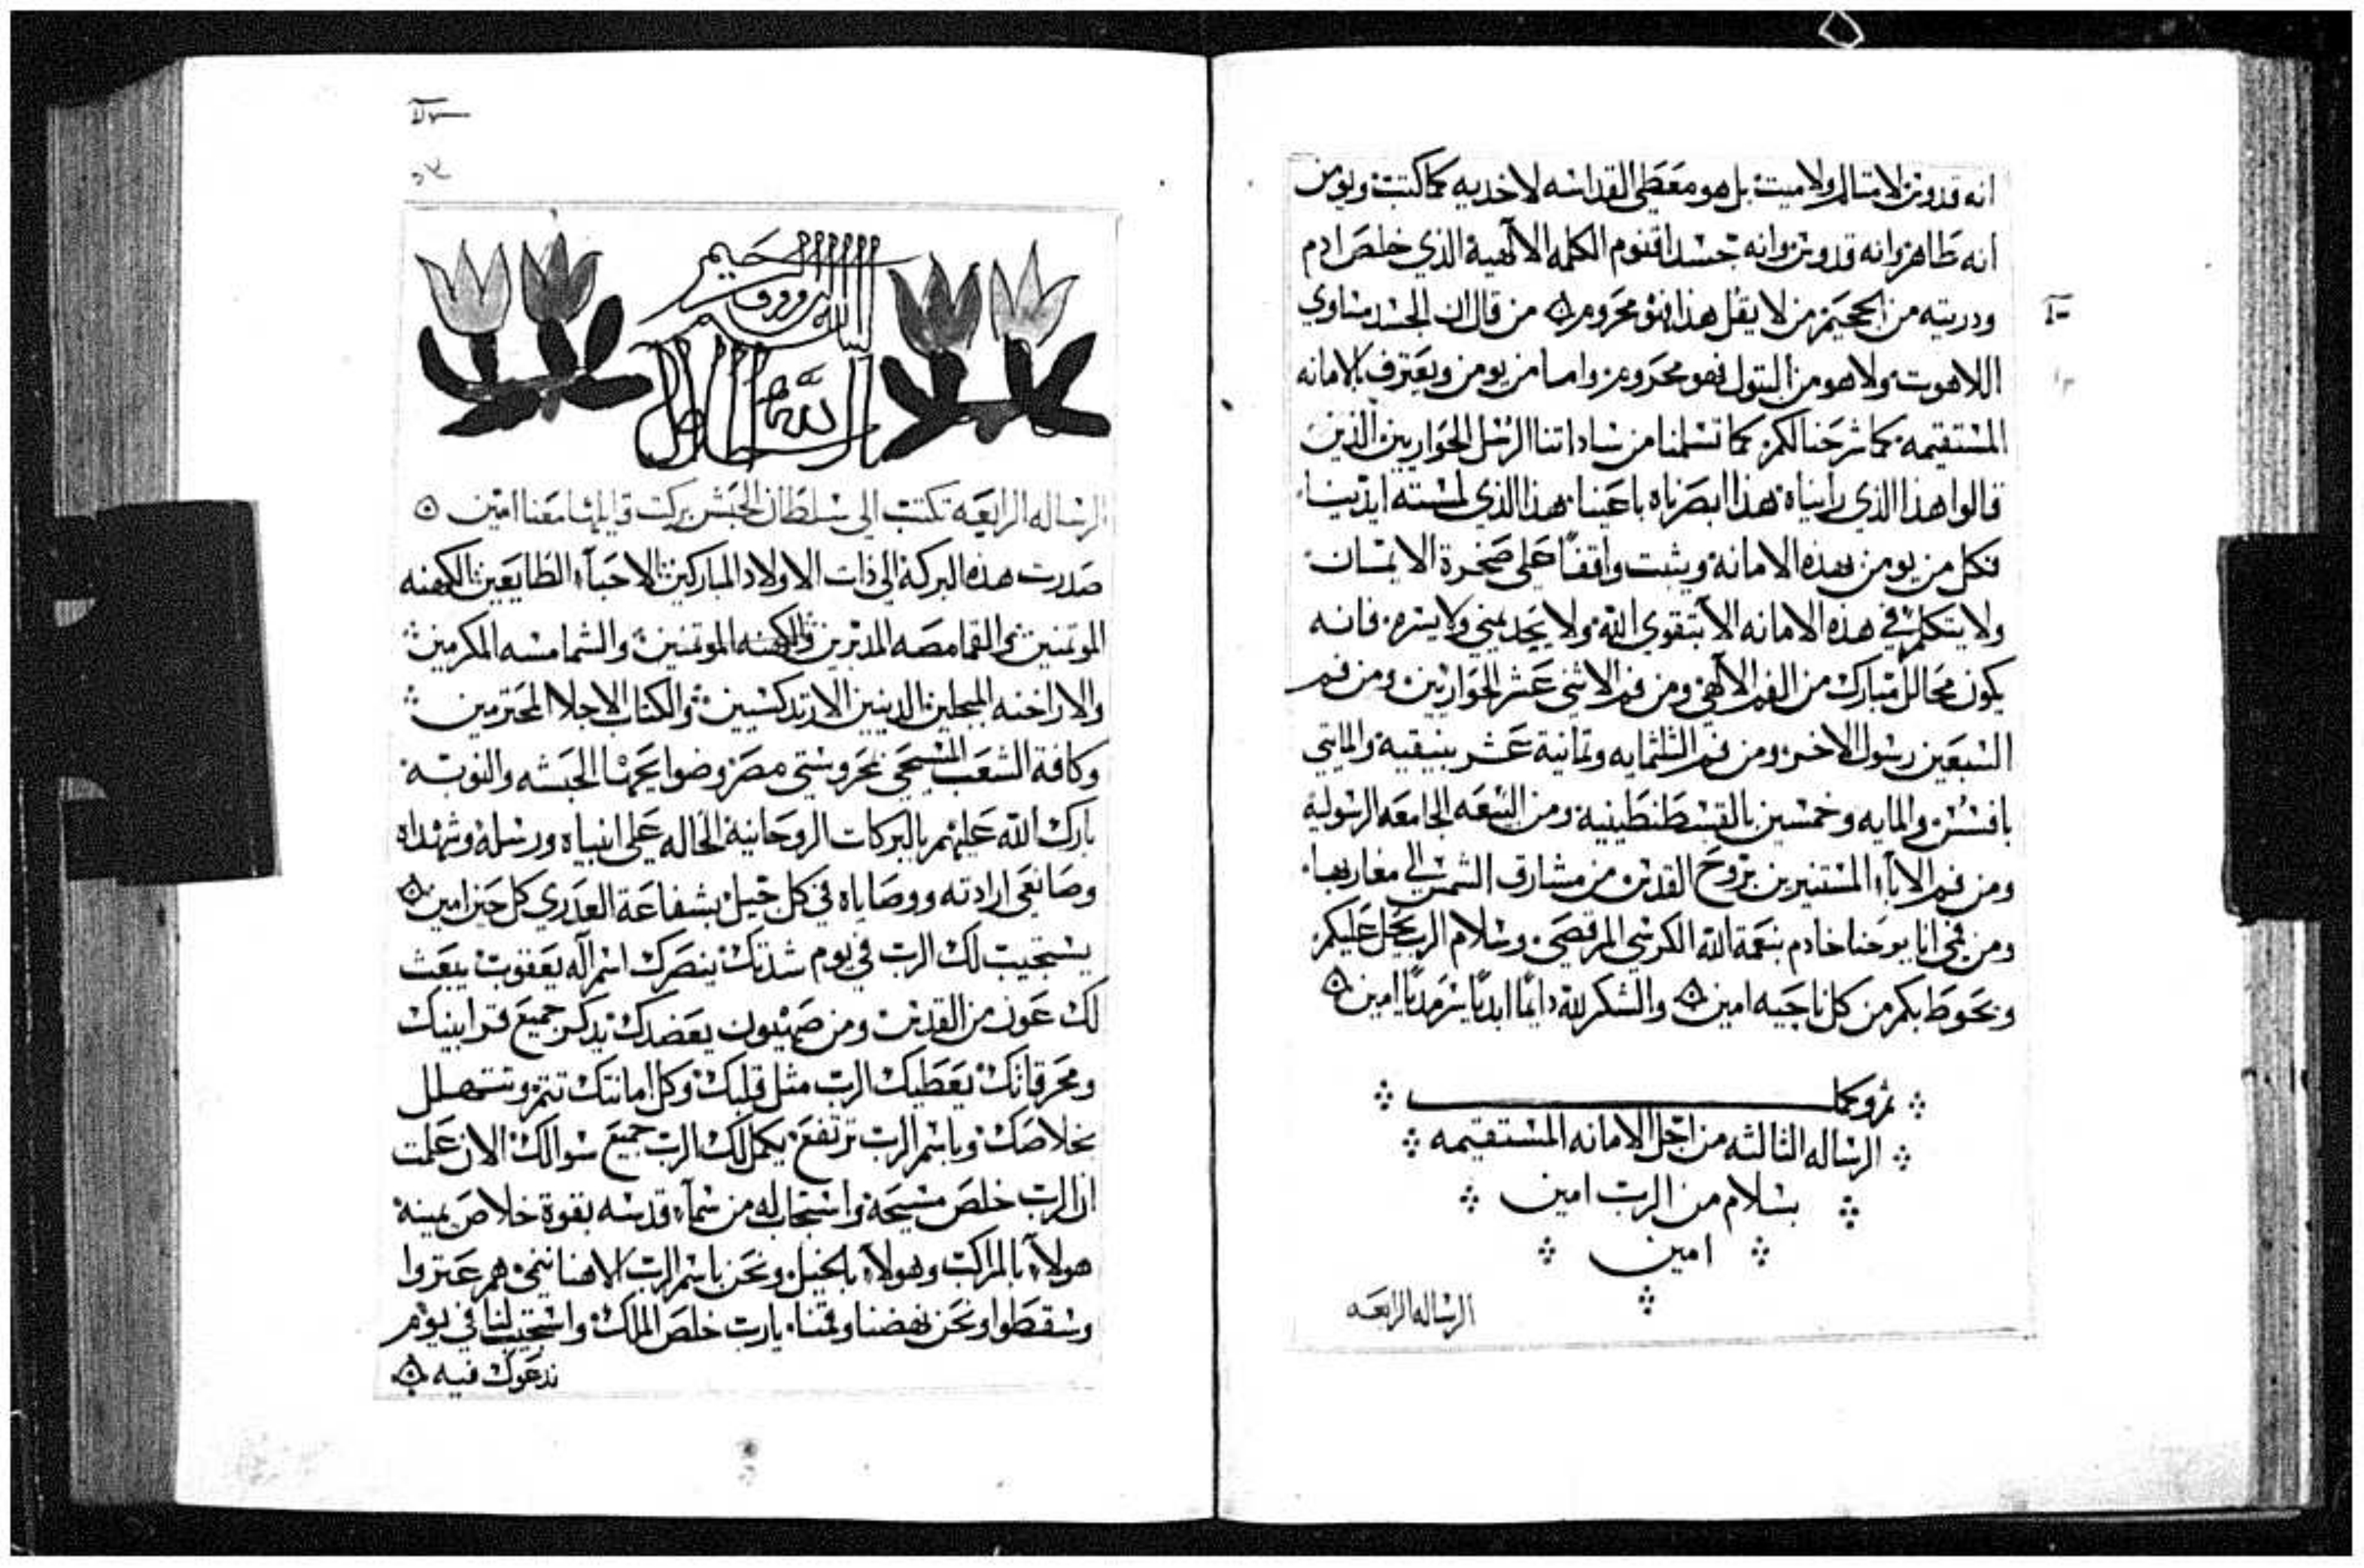 انه قدوس لا متالم ولا ميت بل هو معطي القداسه لاخديه كما كتبت ويومن
انه طاهر وانه قدوس وانه جسد اقنوم الكلمه الالهية الذي خلص ادم
ودريته من الجحيم من لا يقل هذا فهو محروم من قال ان الجسد مساوي
اللاهوت ولا هو من البتول فهو محروم واما من يومن ويعترف بالامانه
المستقيمه كما شرحنا لكم كما تسلمنا من ساداتنا الرسل الحواريين الذين
قالوا هذا الذي رايناه هذا ابصرناه باعيننا هذا الذي لمسته ايدينا
فكل من يومن بهذه الامانه ويثبت واقفاً على صخرة الايمان
ولا يتكلم في هذه الامانه الا بتقوي الله ولا يحد يمني ولا يسره فانه
يكون محالل مبارك من الفم الالهي ومن فم الاثني عشر الحواريين ومن فم
السبعين رسول الاخر ومن فم الثلثمايه وثمانية عشر بنيقية والمايتي
بافسس والمايه وخمسين بالقسطنطينية ومن البيعه الجامعه الرسولية
ومن فم الاباء المستنيرين بروح القدس من مشارق الشمس الي مغاربها
ومن فمي انا يوحنا خادم بنعمة الله الكرسي المرقصي وسلام الرب يحل عليكم
ويحوط بكم من كل ناحيه امين والشكر لله دايماً ابدياً سرمدياً امين
تم وكمل
الرساله الثالثه من اجل الامانه المستقيمه
بسلام من الرب امين
امين
الرساله الرابعه
الرساله الرابعه تكتب الي سلطان الحبش بركت قايلها معنا امين
صدرت هذه البركة الي ذات الاولاد المباركين الاحباء الطايعين الكهنه
الموتمنين والقمامصه المدبرين والكهنه الموتمنين والشمامسه المكرمين
والاراخنه المبجلين الدينيين الارتدكسيين والكتاب الاجلا المحترمين
وكافة الشعب المسيحي بمحروستي مصر وضواحيها الحبشه والنوبه
بارك الله عليهم بالبركات الروحانية الحاله على انبياه ورسله وشهداه
وصانعي ارادته ووصاياه في كل جيل بشفاعة العدري كل حين امين
يستجيب لك الرب في يوم شدتك ينصرك اسم اله يعقوب يبعث
لك عون من القدس ومن صهيون يعضدك يدكر جميع قرابينك
ومحرقاتك يعطيك الرب مثل قلبك وكل امانتك تتم وتتهلل
بخلاصك وباسم الرب ترتفع يكمل لك الرب جميع سوالك الان علمت
ان الرب خلص مسيحه واستجاب له من سماء قدسه بقوة خلاص يمينه
هولاء بالمراكب وهولاء بالخيل ونحن باسم الرب الاهنا ننمي هم عتروا
وسقطوا ونحن نهضنا وقمنا يارب خلص الملك واستجيب لنا في يوم
ندعوك فيه